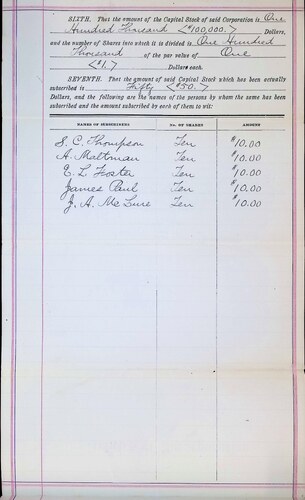 SIXTH. That the amount of the Capital Stock of said Corporation is One
Hundred Thousand <$100,000.> Dollars,
and the number of Shares into which it is divided is One Hundred
Thousand of the par value of One
<$1.> Dollars each.
SEVENTH. That the amount of said Capital Stock which has been actually
subscribed is Fifty <$50.>
Dollars, and the following are the names of the persons by whom the same has been
subscribed and the amount subscribed by each of them to wit:
NAMES OF SUBSCRIBERS NO. OF SHARES AMOUNT
S. C. Thompson Ten $10.00
A. Mattman Ten $10.00
E. L Foster Ten $10.00
James Paul Ten $10.00
J. A. McLure Ten $10.00